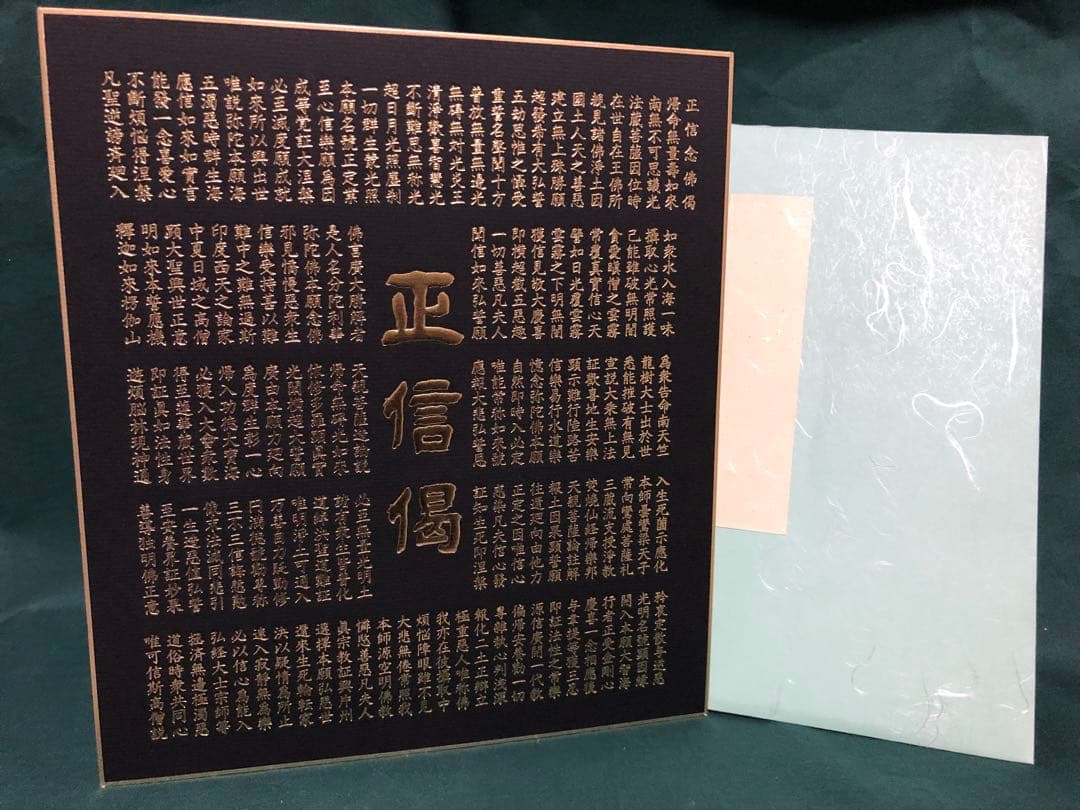 正信念佛偈
歸命無量壽如來
南無不可思議光
法藏菩薩因位時
在世自在王佛所
覩見諸佛淨土因
國土人天之善惡
建立無上殊勝願
超發希有大弘誓
五劫思惟之攝受
重誓名聲聞十方
普放無量無邊光
無碍無對光炎王
清淨歡喜智慧光
不斷難思無称光
超日月光照塵刹
一切群生蒙光照
本願名號正定業
至心信樂願爲因
成等覚証大涅槃
必至滅度願成就
如來所以興出世
唯説弥陀本願海
五濁惡時群生海
應信如來如實言
能發一念喜愛心
不斷煩惱得涅槃
凡聖逆謗済廻入
如衆水入海一味
攝取心光常照護
已能雖破無明闇
貪愛瞋憎之雲霧
常覆眞實信心天
譬如日光覆雲霧
雲霧之下明無闇
獲信見敬大慶喜
即横超截五惡趣
一切善惡凡夫人
聞信如來弘誓願
正信偈
佛言廣大勝解者
是人名分陀利華
弥陀佛本願念佛
邪見憍慢惡衆生
信樂受持甚以難
難中之難無過斯
印度西天之論家
中夏日域之高僧
顯大聖興世正意
明如來本誓應機
釋迦如來楞伽山
爲衆告命南天竺
龍樹大士出於世
悉能摧破有無見
宣説大乘無上法
証歡喜地生安樂
顯示難行陸路苦
信樂易行水道樂
憶念弥陀佛本願
自然即時入必定
唯能常称如來號
應報大悲弘誓恩
天親菩薩造論説
歸命無碍光如來
依修多羅顯眞實
光闡横超大誓願
廣由本願力廻向
爲度群生彰一心
歸入功徳大寶海
必獲入大會衆數
得至蓮華蔵世界
即証眞如法性身
遊煩惱林現神通
入生死薗示應化
本師曇鸞梁天子
常向鸞處菩薩礼
三蔵流支授淨教
焚焼仙経歸樂邦
天親菩薩論註解
報土因果顯誓願
往還廻向由他力
正定之因唯信心
惑染凡夫信心發
証知生死即涅槃
必至無量光明土
諸有衆生皆普化
道綽決聖道難証
唯明淨土可通入
万善自力貶勤修
円満徳號勸專称
三不三信誨慇懃
像末法滅同悲引
一生造惡值弘誓
至安養界証妙果
善導独明佛正意
矜哀定散與逆惡
光明名號顯因縁
開入本願大智海
行者正受金剛心
慶喜一念相應後
與韋提等獲三忍
即証法性之常樂
源信廣開一代教
偏歸安養勸一切
專雜執心判淺深
報化二土正辯立
極重惡人唯称佛
我亦在彼攝取中
煩惱障眼雖不見
大悲無倦常照我
本師源空明佛教
憐愍善惡凡夫人
眞宗教証興片州
選擇本願弘惡世
還來生死輪轉家
決以疑情爲所止
速入寂靜無爲樂
必以信心爲能入
弘経大士宗師等
拯済無邊極濁惡
道俗時衆共同心
唯可信斯高僧説